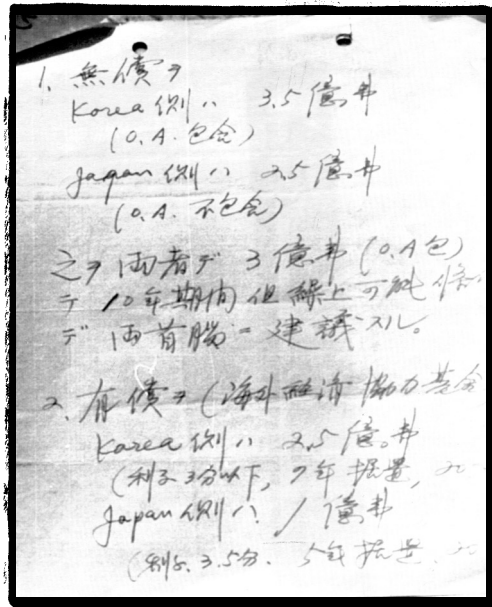 1. 無償ヲ
Korea側ハ 3.5億弗
(O.A. 包含)
Japan側ハ 2.5億弗
(O.A. 不包含)
之ヲ両者デ 3億弗 (O.A包)
デ 10年期間 但繰上可能
デ 両首脳ニ建議スル。
2. 有償ヲ (海外経済協力基金
Korea側ハ 2.5億弗
(利子3分以下, 7年据置, 20
Japan側ハ 1億弗
(利子. 3.5分. 5年据置, 20